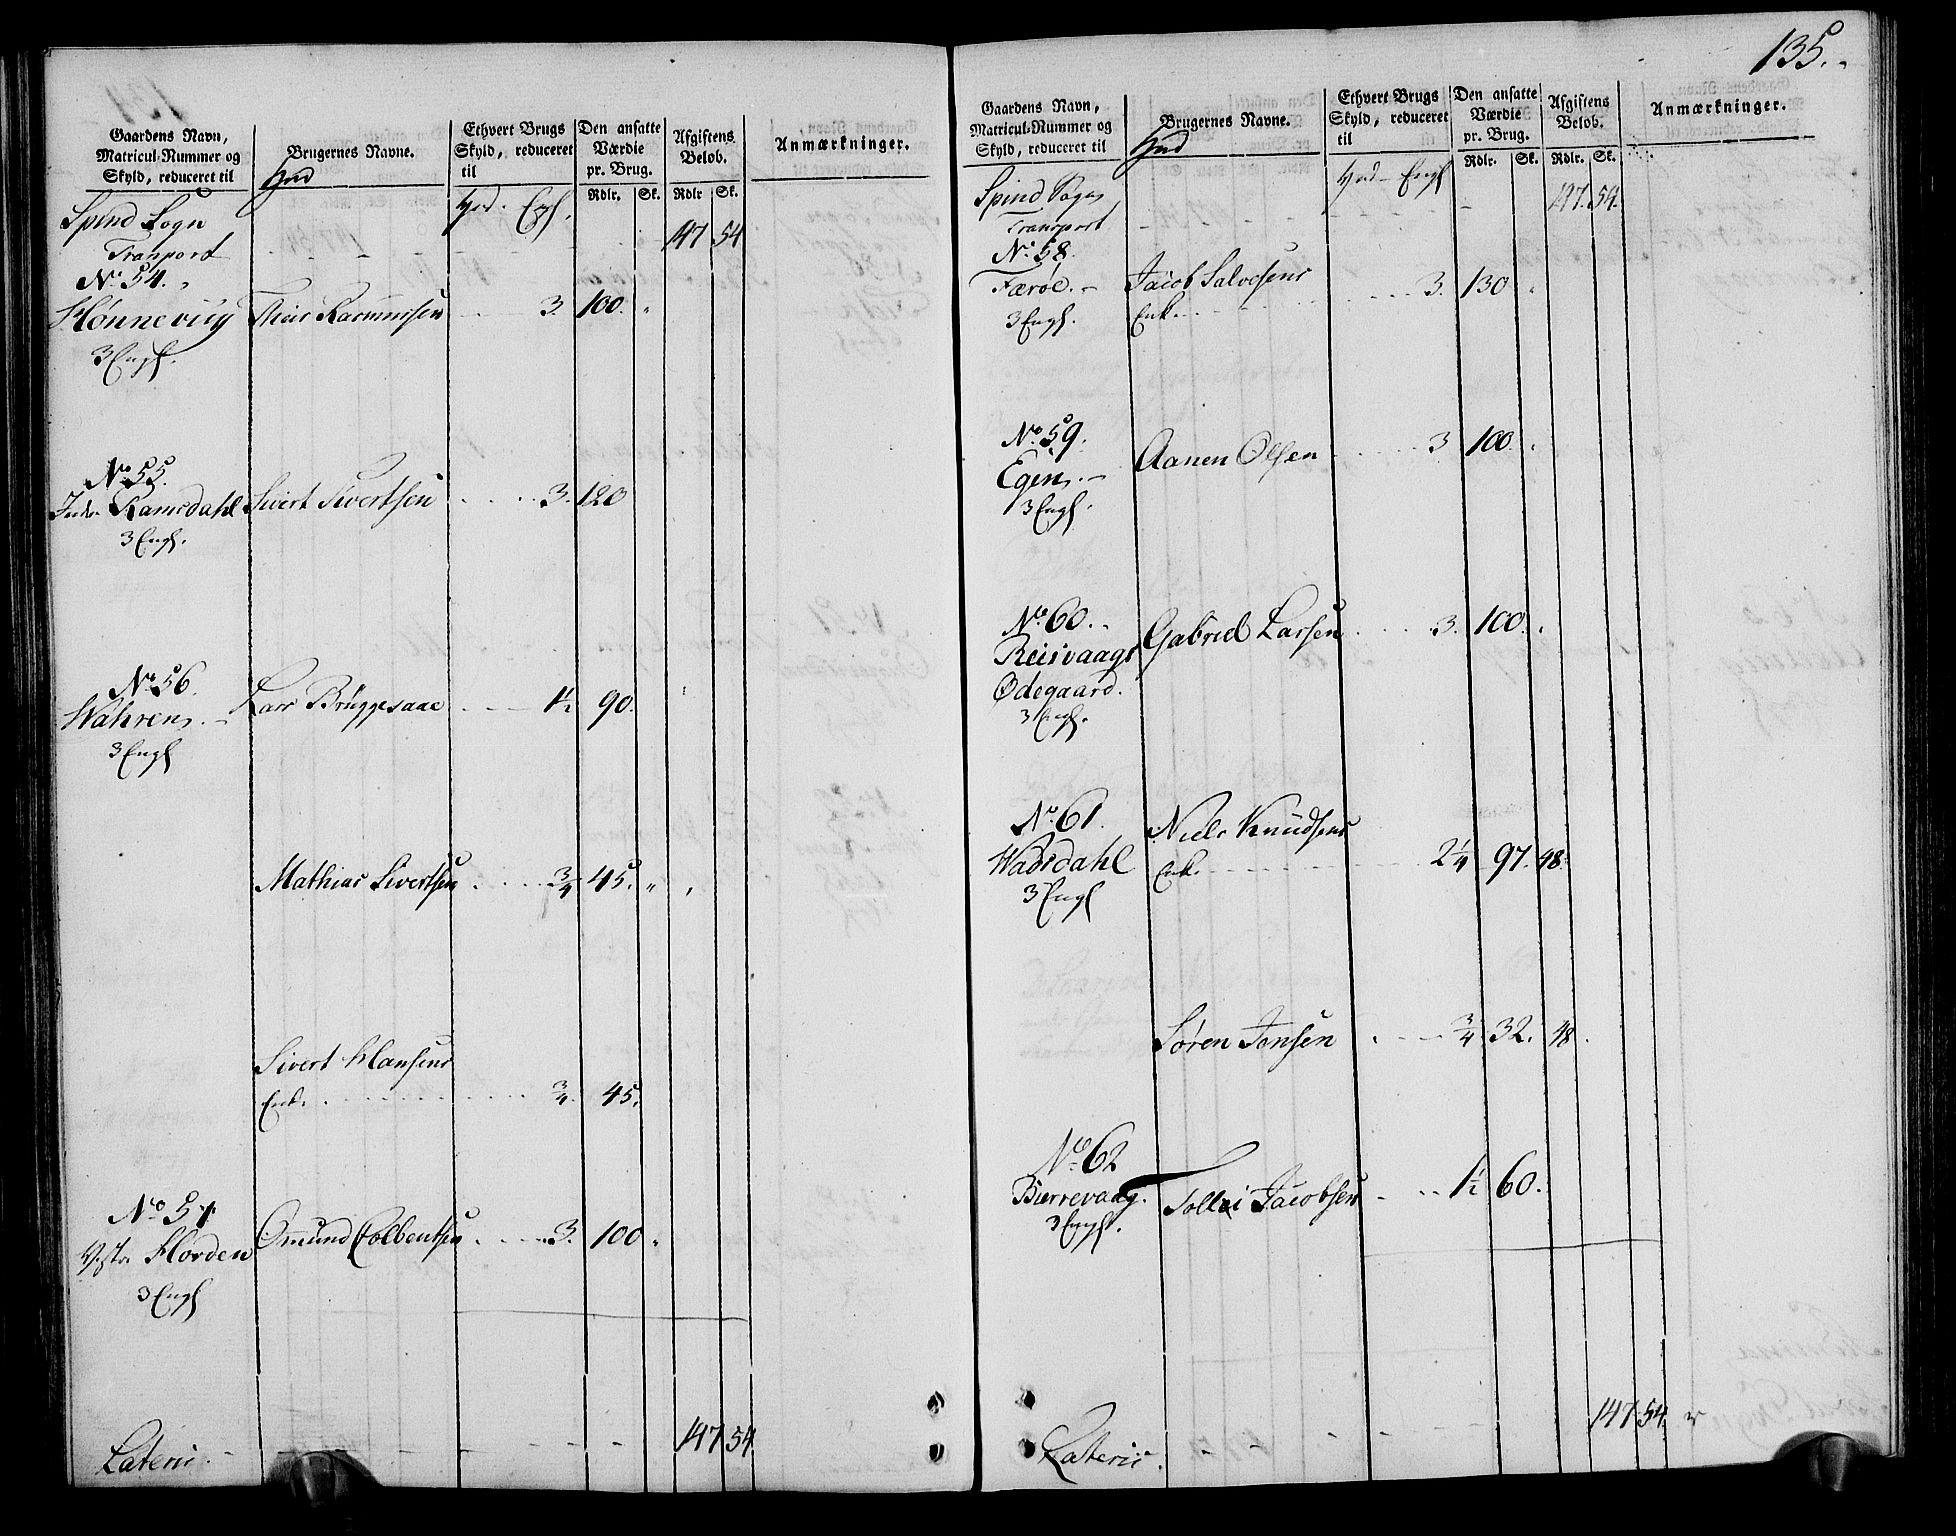 Gaardens Navn,
Matricul-Nummer og
Skyld, reduceret til
Brugernes Navne.
Hud
Ethvert Brugs
Skyld, reduceret
til
Den ansatte
Værdie
pr. Brug.
Afgiftens
Beløb.
Anmærkninger.
Hud. Engl.
Rdlr. Sk. Rdlr Sk.
Spind Sogn
Transport 147 54
No. 54.
Hønnevig Theis Rasmussen 3. 100.
3 Engl.
No. 55.
Indr. Ramsdahl Sivert Sivertsen 3. 120
3 Engl.
No. 56.
Wahrens Lars Brüggesaae 1½ 90.
3 Engl
Mathias Sivertsen ¾ 45.
Sivert Hansens
Enk. ¾ 45.
No 57.
Vestr. Horden Omund Colbentsen 3. 100
3 Engl
Lateris 147 54
135.
Gaardens Navn,
Matricul-Nummer og
Skyld, reduceret til
Brugernes Navne.
Hud
Ethvert Brugs
Skyld, reduceret
til
Den ansatte
Værdie
pr. Brug.
Afgiftens
Beløb.
Anmærkninger.
Hud Engl
Rdlr. Sk. Rdlr. Sk.
Spind Sogn
Transport 147. 54.
No. 58.
Færøe. Jacob Salvesens
3 Engl. Enk. 3. 130
No. 59.
Egens. Aanen Olsen 3 100.
3 Engl.
No. 60.
Reisvaags Gabriel Larsen 3. 100.
Ødegaard.
3 Engl.
No. 61.
Waasdahl Niels Knudsens
3 Engl Enk. 2¼ 97. 48.
Søren Jonsen ¾ 32. 48.
No. 62
Bierrevaag. Tollei Jacobsen 1½ 60.
3 Engl.
Lateris. 147 54.